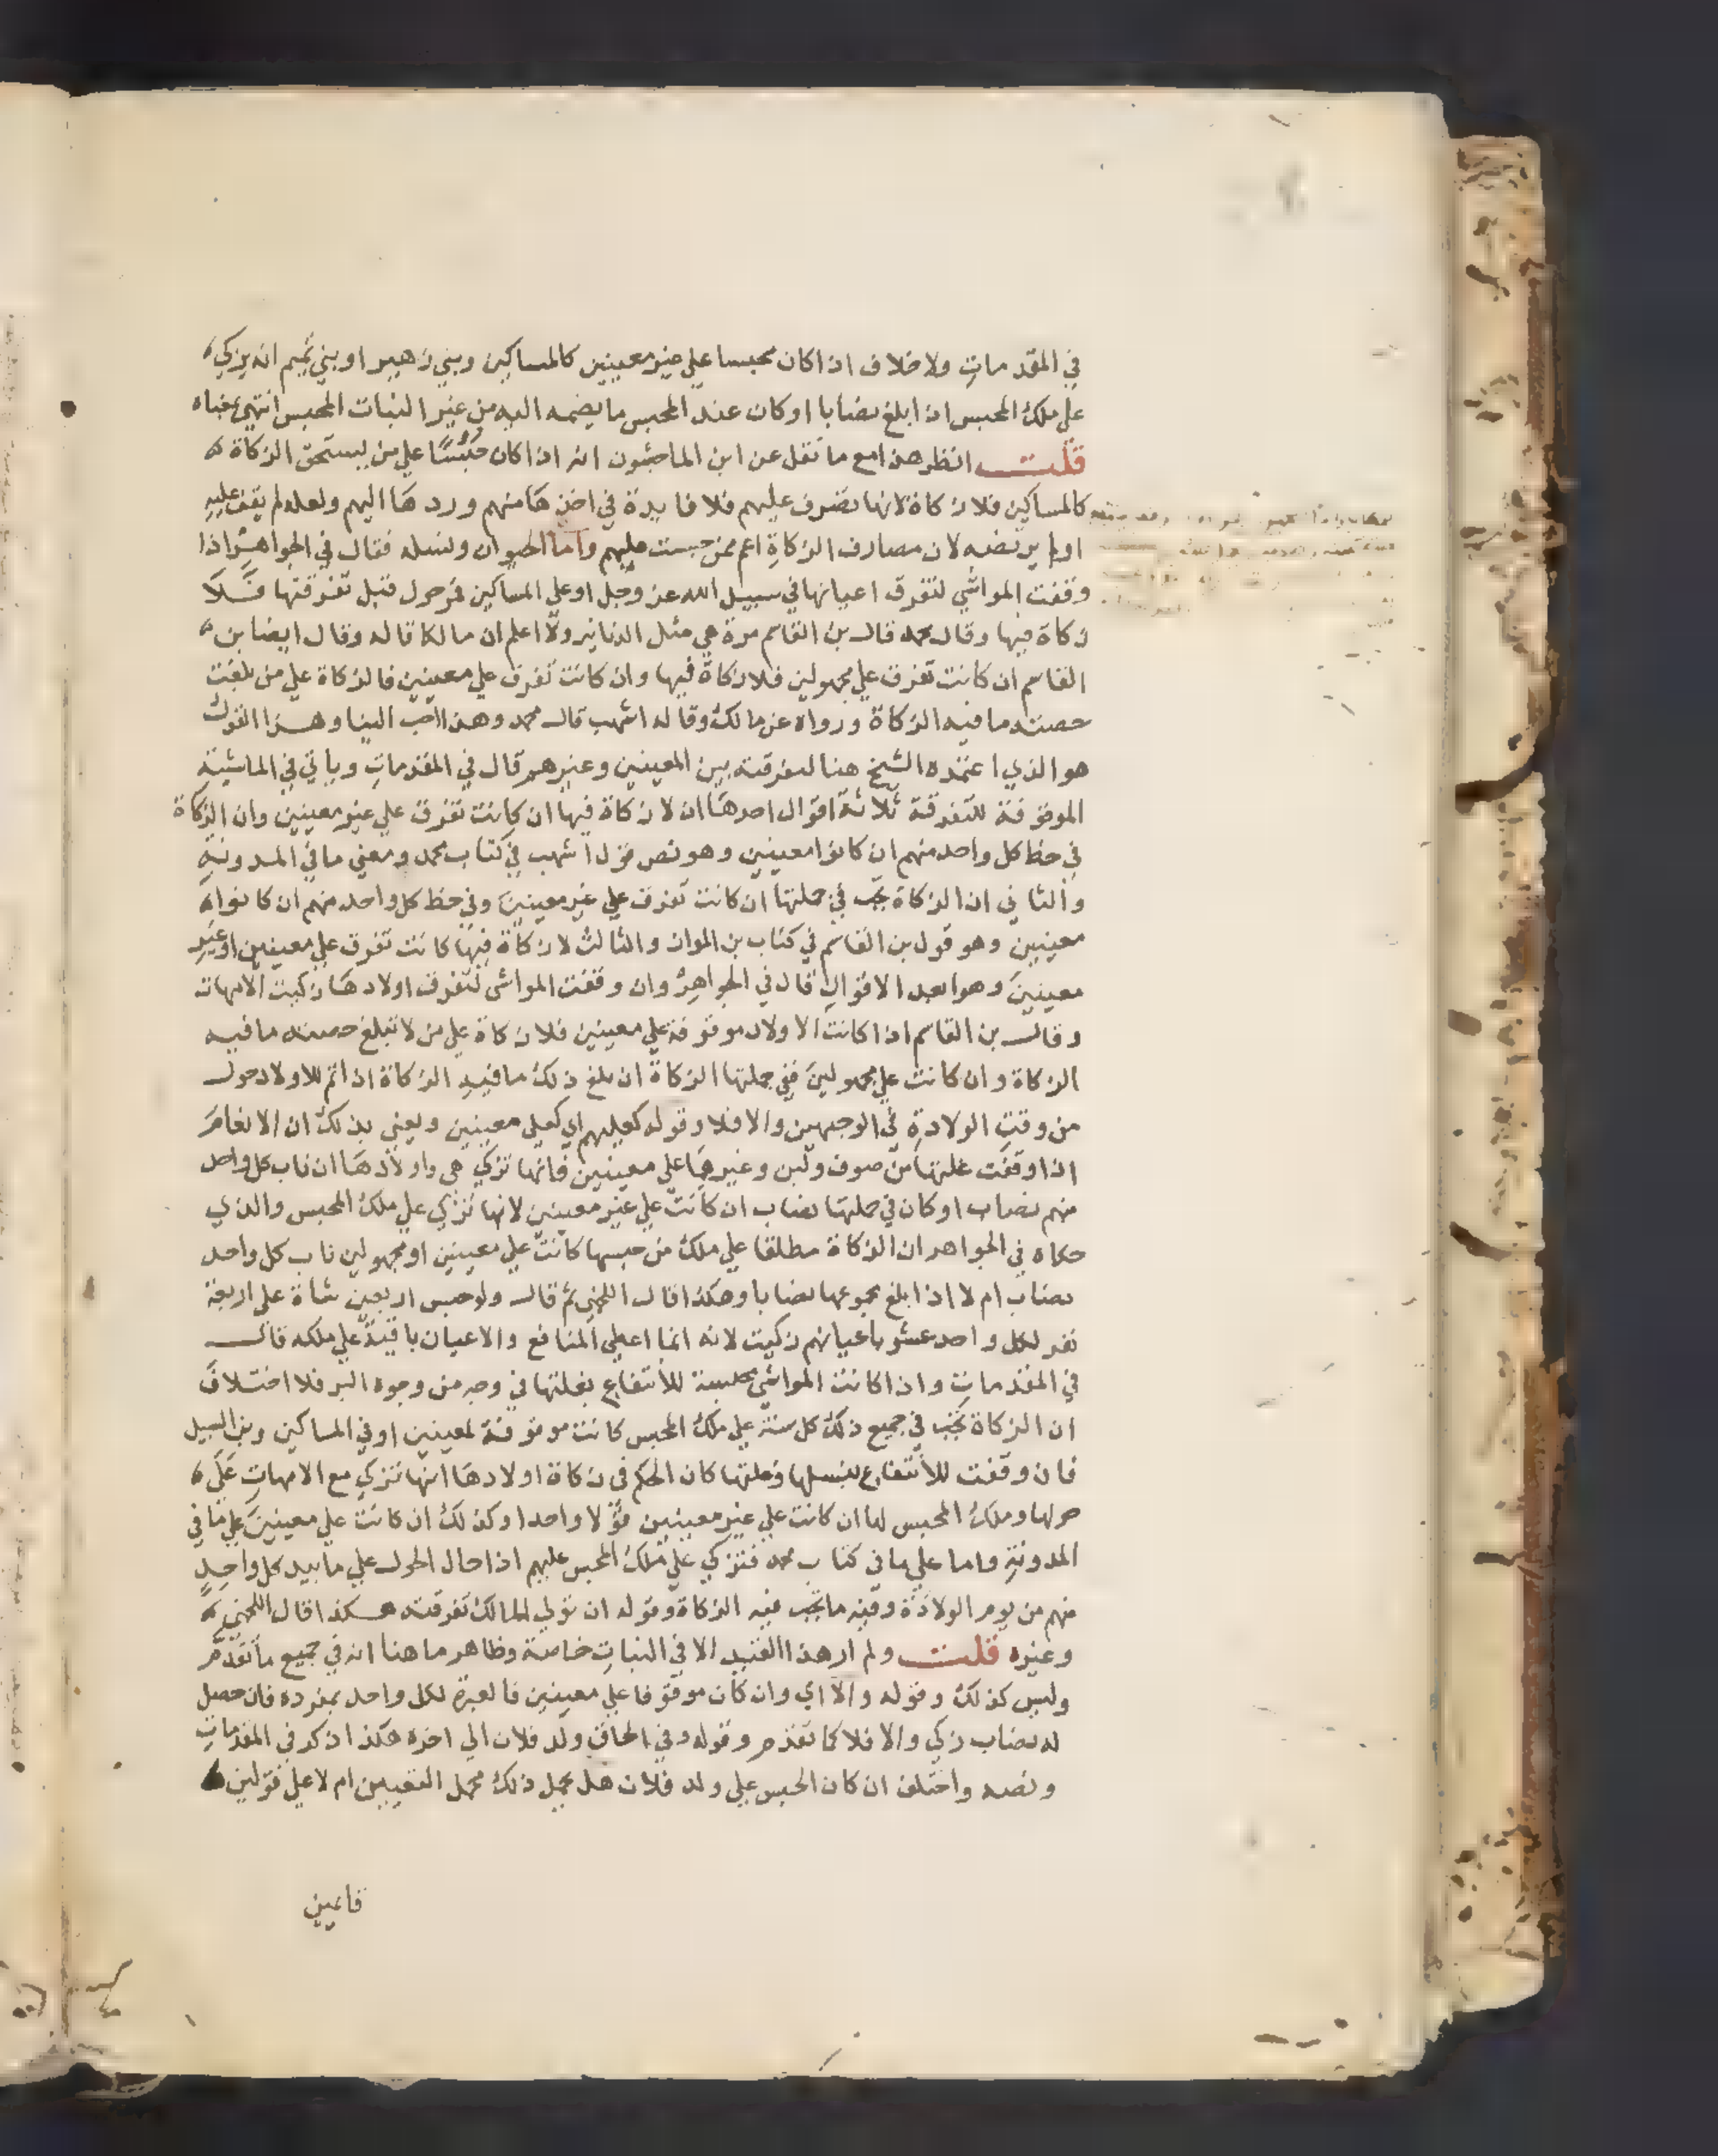 في المقدمات ولا خلاف اذا كان محبسا علي غير معينين كالمساكين وبني زهير او بني تميم انه يزكي
علي ملك المحبس اذا بلغ نصابا او كان عند المحبس ما يضمه اليه من غير النبات المحبس انتهي بمعناه
قلت انظر هذا مع ما نقل عن ابن الماجشون انه اذا كان حبسا علي من يستحق الزكاة
كالمساكين فلا زكاة لانها تصرف عليهم فلا فايدة في اخذها منهم وردها اليهم ولعله لم يقف عليه
اولم يرتضه لان مصارف الزكاة اعم ممن حبست عليهم واما الحيوان ونسله فقال في الجواهر اذا
وقفت المواشي لتفرق اعيانها في سبيل الله عز وجل او علي المساكين فمر حول قبل تفرقتها فلا
زكاة فيها وقال محمد قال بن القاسم مرة هي مثل الدنانير ولا اعلم ان مالكا قاله وقال ايضا بن
القاسم ان كانت تفرق علي مجهولين فلا زكاة فيها وان كانت تفرق علي معينين فالزكاة علي من بلغت
حصته ما فيه الزكاة ورواه عن مالك وقاله اشهب قال محمد وهذا احب الينا وهذا القول
هو الذي اعتمده الشيخ هنا لتفرقته بين المعينين وغيرهم قال في المقدمات وياتي في الماشية
الموقوفة للتفرقة ثلاثة اقوال احدها ان لا زكاة فيها ان كانت تفرق علي غير معينين وان الزكاة
في حظ كل واحد منهم ان كانوا معينين وهو نص قول اشهب في كتاب محمد ومعني ما في المدونة
والثاني ان الزكاة تجب في جملتها ان كانت تفرق علي غير معينين وفي حظ كل واحد منهم ان كانوا
معينين وهو قول بن القاسم في كتاب بن المواز والثالث لا زكاة فيها كانت تفرق علي معينين او غير
معينين وهو ابعد الاقوال قال في الجواهر وان وقفت المواشي لتفرق اولادها زكيت الامهات
وقال بن القاسم اذا كانت الاولاد موقوفة علي معينين فلا زكاة علي من لا تبلغ حصته ما فيه
الزكاة وان كانت علي مجهولين ففي جملتها الزكاة ان بلغ ذلك ما فيه الزكاة اذا تم للاولاد حول
من وقت الولادة في الوجهين والا فلا وقوله كعليهم اي كعلي معينين ويعني بذلك ان الانعام
اذا وقفت غلتها من صوف ولبن وغيرها علي معينين فانها تزكي هي واولادها ان ناب كل واحد
منهم نصاب او كان في جملتها نصاب ان كانت علي غير معينين لانها تزكي علي ملك المحبس والذي
حكاه في الجواهر ان الزكاة مطلقا علي ملك من حبسها كانت علي معينين او مجهولين ناب كل واحد
نصاب ام لا اذا بلغ مجموعها نصابا وهكذا قال اللخمي ثم قال ولو حبس اربعين شاة علي اربعة
نفر لكل واحد عشر باعيانهم زكيت لانه انما اعطي المنافع والاعيان باقية علي ملكه قال
في المقدمات واذا كانت المواشي محبسة للانتفاع بغلتها في وجه من وجوه البر فلا اختلاف
ان الزكاة تجب في جميع ذلك كل سنة علي ملك المحبس كانت موقوفة لمعينين او في المساكين وبن السبيل
فان وقفت للانتفاع بنسلها وغلتها كان الحكم في زكاة اولادها انها تزكي مع الامهات علي
حولها وملك المحبس لها ان كانت علي غير معينين قولا واحدا وكذلك ان كانت علي معينين علي ما في
المدونة واما علي ما في كتاب محمد فتزكي علي ملك المحبس عليهم اذا حال الحول علي ما بيد كل واحد
منهم من يوم الولادة وفيه ما تجب فيه الزكاة وقوله ان تولي المالك تفرقته هكذا قال اللخمي
وغيره قلت ولم ار هذا القيد الا في النبات خاصة وظاهر ما هنا انه في جميع ما تقدم
وليس كذلك وقوله والا اي وان كان موقوفا علي معينين فالعبرة لكل واحد بمفرده فان حصل
له نصاب زكي والا فلا كما تقدم وقوله وفي الحاق ولد فلان الي اخره هكذا ذكر في المقدمات
ونصه واختلف ان كان الحبس علي ولد فلان هل يحمل ذلك محمل التعيين ام لا علي قولين
فاعين